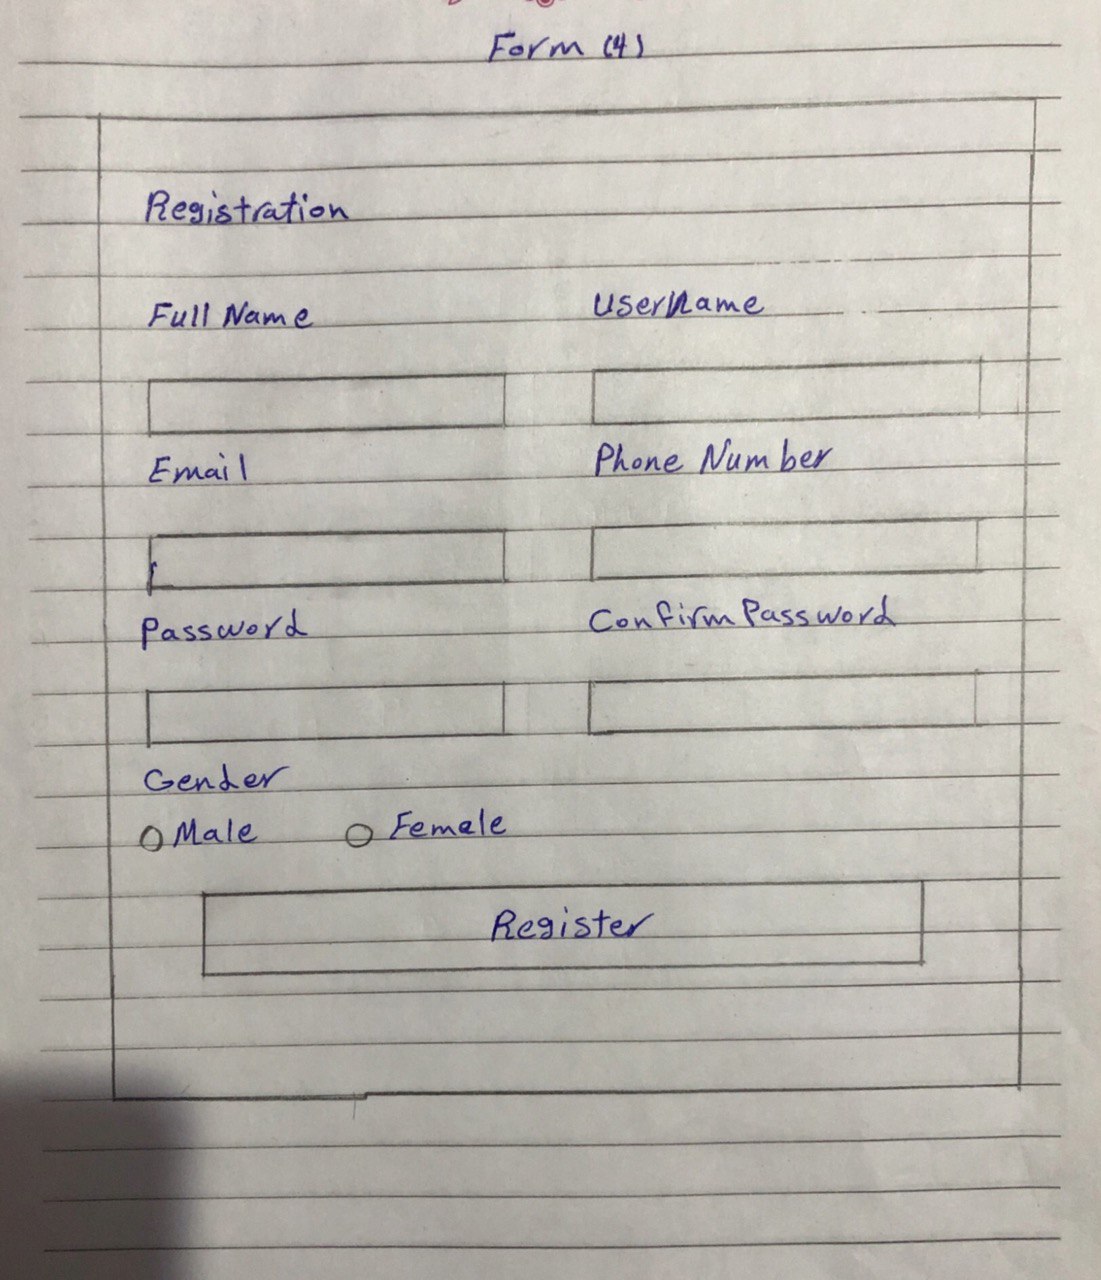 Form (4)
Registration
Full Name
UserName
Email
Phone Number
Password
Confirm Password
Gender
Male
Female
Register